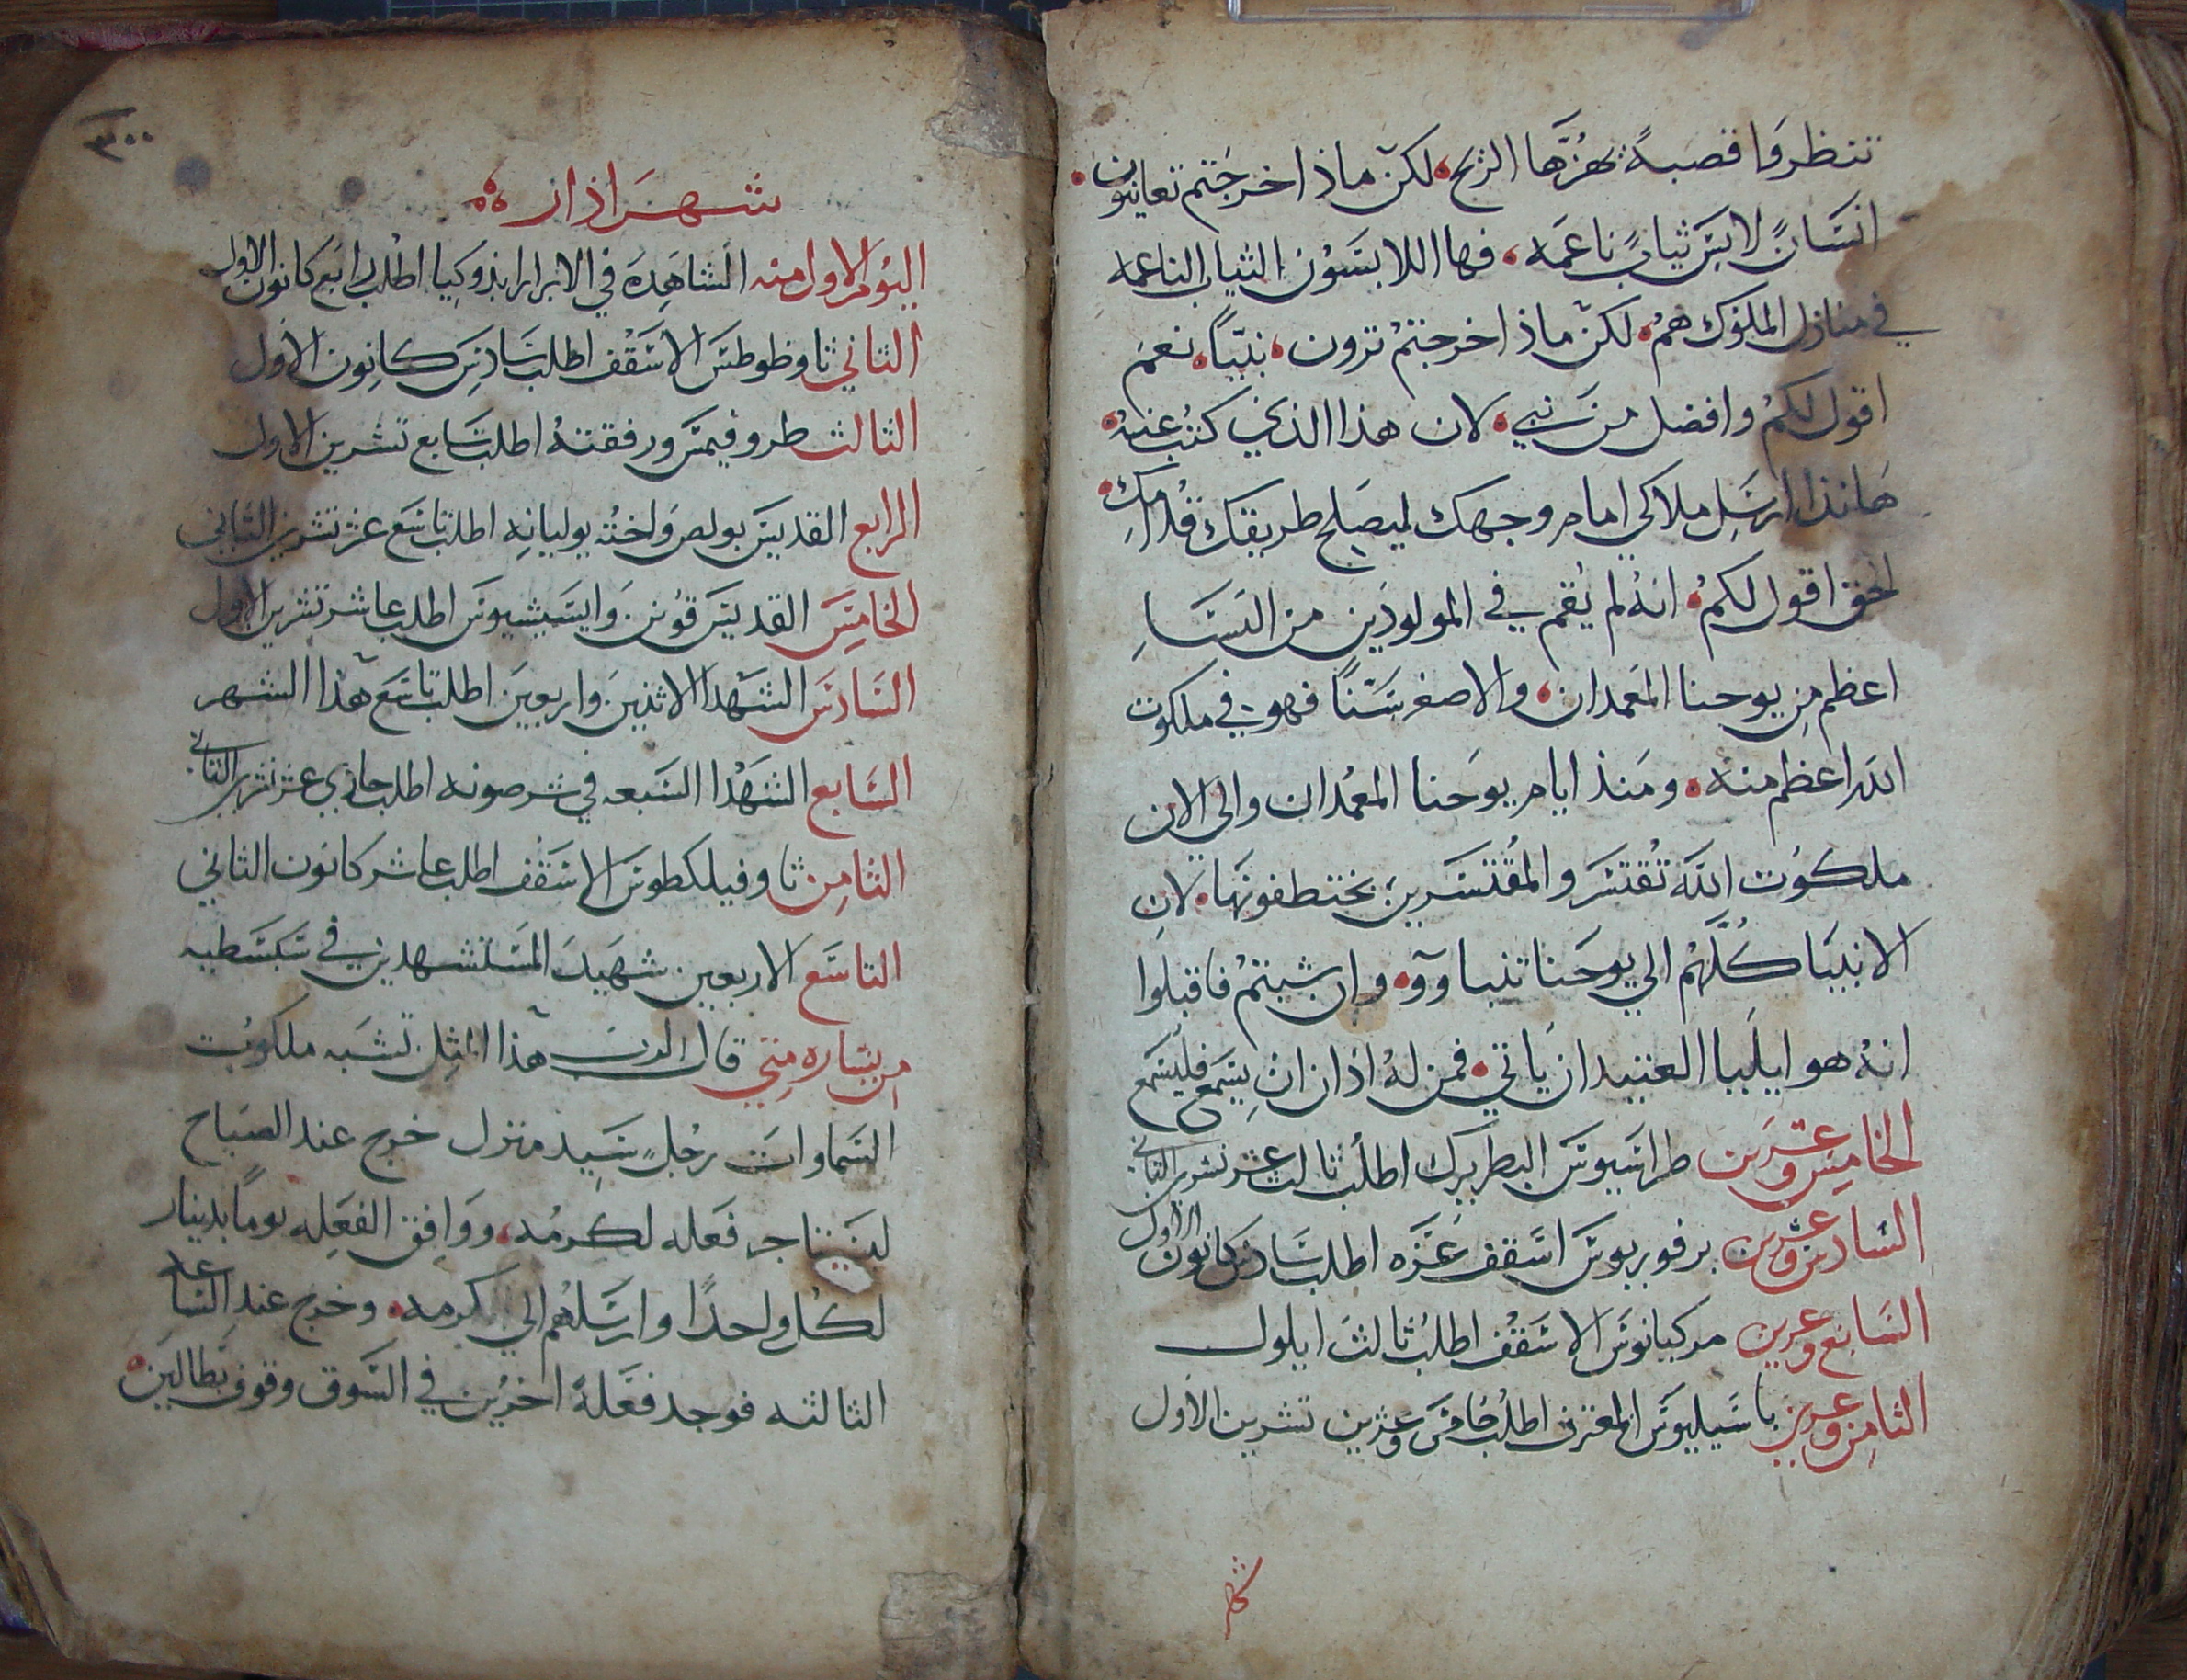 تنظروا قصبةً تهزها الريح لكن ماذا خرجتم تعاينون
انسانٍ لابس ثيابٍ ناعمه فها اللابسون الثياب الناعمه
في منازل الملوك هم لكن ماذا خرجتم ترون نبيّاً نعم
اقول لكم وافضل من نبي لان هذا الذي كتب عنه
هانذا ارسل ملاكي امام وجهك ليصلح طريقك قدامك
الحق اقول لكم انه لم يقم في المولودين من النسا
اعظم من يوحنا المعمدان والاصغر سنّاً فهو في ملكوت
الله اعظم منه ومنذ ايام يوحنا المعمدان والى الان
ملكوت الله تقتسر والمقتسرين يختطفونها لان
الانبيا كلهم الي يوحنا تنباوو وان شيتم فاقبلوا
انه هو ايليا العتيد ان ياتي فمن له اذان ان يسمع فليسمع
الخامس وعشرين طراسيوس البطريرك اطلب ثالث عشر تشرين الثاني
السادس وعشرين برفوريوس اسقف غزه اطلب سادس كانون الاول
السابع وعشرين مركيانوس الاسقف اطلب ثالث ايلول
الثامن وعشرين باسيليوس المعترف اطلب خامس وعشرين تشرين الاول
شهر
٣٠٠
شهر اذار
اليوم الاول منه الشاهده في الابرار ابذوكيا اطلب رابع كانون الاول
الثاني ثاوظوطس الاسقف اطلب سادس كانون الاول
الثالث طروفيمس ورفقته اطلب سابع تشرين الاول
الرابع القديس بولص واخته يوليانه اطلب تاسع عشر تشرين الثاني
الخامس القديس قونن وايسيشيوس اطلب عاشر تشرين الاول
السادس الشهدا الاثنين واربعين اطلب تاسع هذا الشهر
السابع الشهدا السبعه في شرصونه اطلب حادي عشر تشرين الثاني
الثامن ثاوفيلكطوس الاسقف اطلب عاشر كانون الثاني
التاسع الاربعين شهيد المستشهدين في سبسطيه
من بشاره متي قال الرب هذا المثل تشبه ملكوت
السماوات رجلٍ سيد منزل خرج عند الصباح
ليستاجر فعله لكرمه ووافق الفعله يوماً بدينار
لكل واحدًا وارسلهم الي كرمه وخرج عند الساعه
الثالثه فوجد فعلةً اخرين في السوق وقوف بطالين